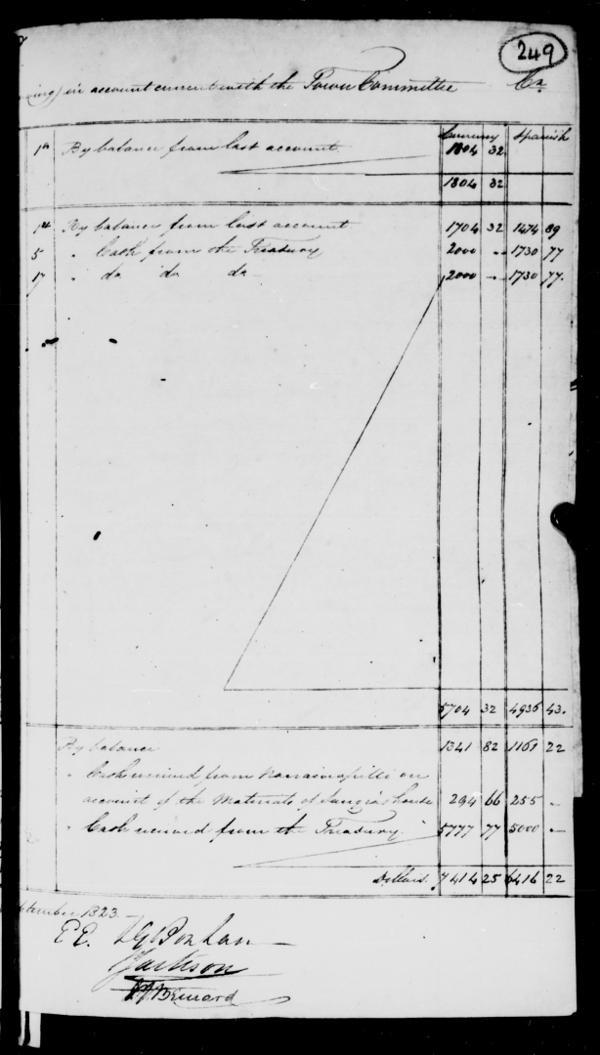 249
in account current with the Town Committee Cr.
Currency Spanish
1st By balance from last account 1804 32
1804 32
1st By balance from last account 1704 32 1474 89
5 " Cash from the Treasury 2000 - 1730 77
17 " do do do 2000 - 1730 77.
5704 32 4936 43.
By balance 1341 82 1161 22
" Cash received from Narrainapilli on
account of the Materials of house 294 66 255 -
" Cash received from the Treasury. 5777 77 5000 -
Dollars. 7414 25 6416 22
ptember 1823
E.E. S G Bonham
Jackson
Bernard